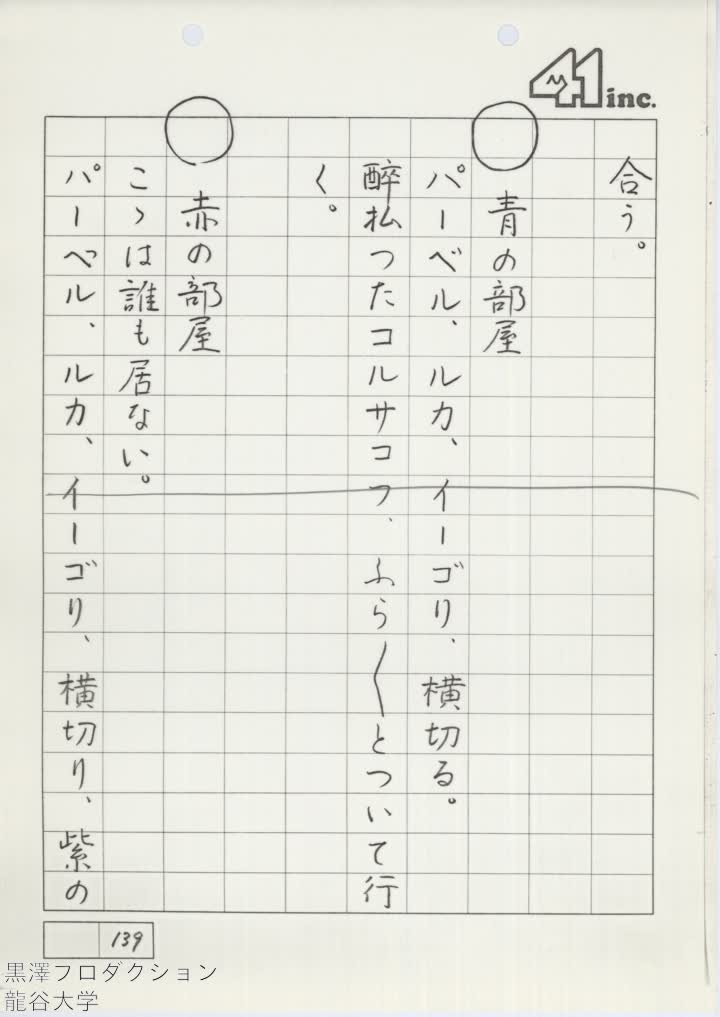 41 inc.
合う。
○ 青の部屋
パーベル、ルカ、イーゴリ、横切る。
酔払つたコルサコフ、ふら〱とついて行
く。
○ 赤の部屋
こゝは誰も居ない。
パーベル、ルカ、イーゴリ、横切り、紫の
139
黒澤プロダクション
龍谷大学